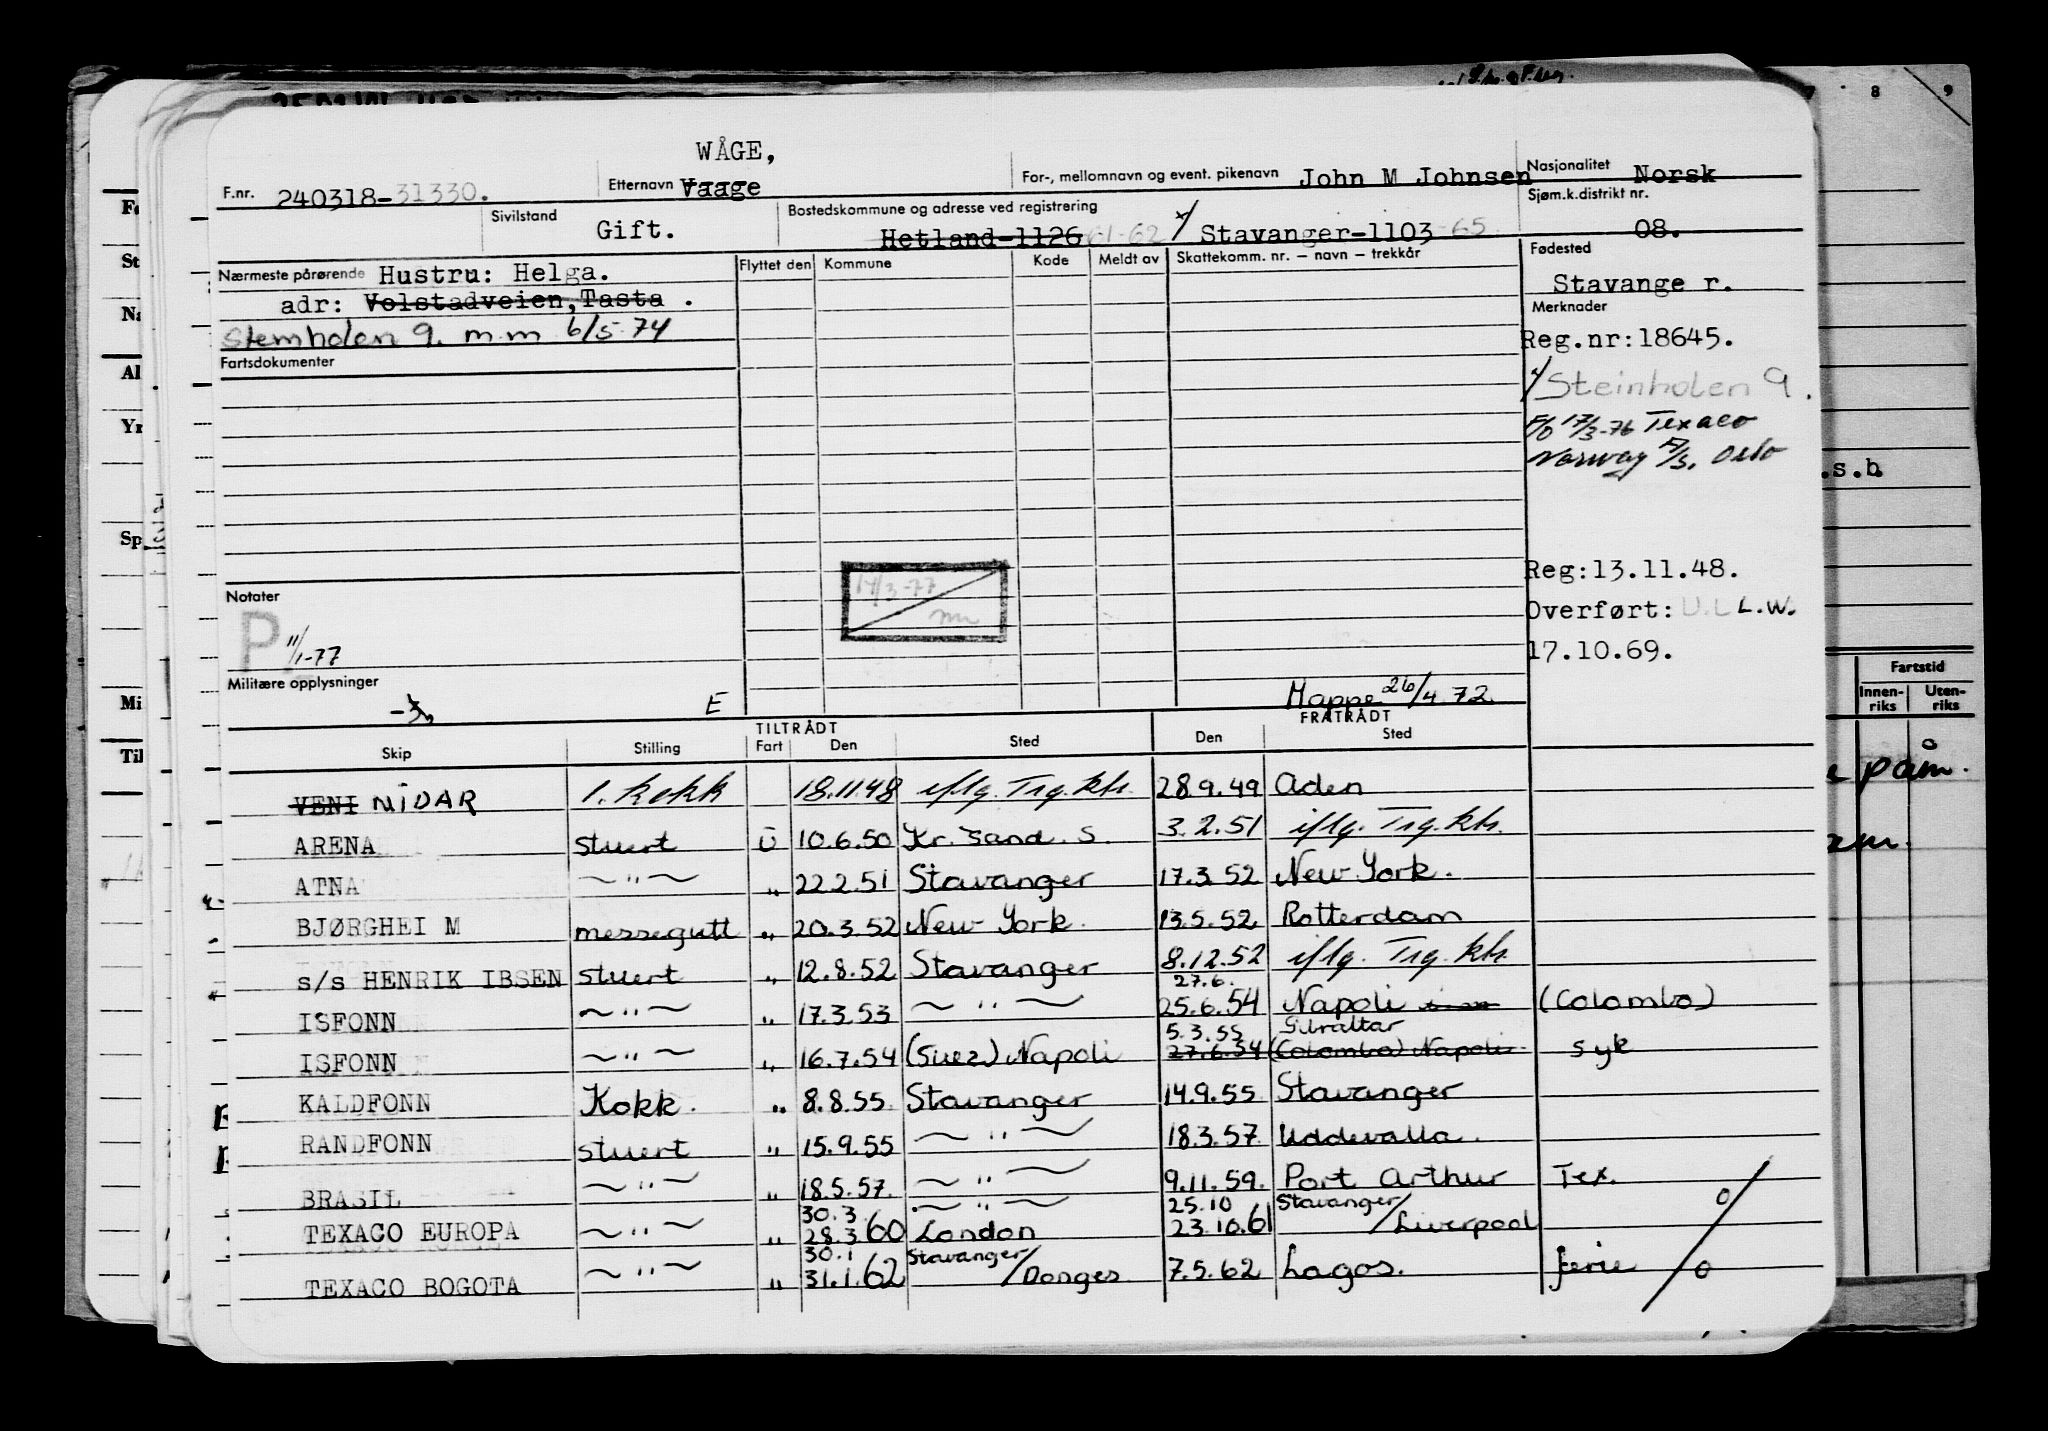 WÅGE,
F.nr. 240318-31330. Etternavn Vaage For-, mellomnavn og event. pikenavn John M Johnsen Nasjonalitet Norsk
Sivilstand Gift. Bostedskommune og adresse ved registrering Hetland-1126 61-62 Stavanger-1103-65 Sjøm.k.distrikt nr. 08.
Nærmeste pårørende Hustru: Helga. Flyttet den Kommune Kode Meldt av Skattekomm. nr. – navn – trekkår Fødested
adr: Volstadveien, Tasta . Stavange r.
Steinholen 9. m.m 6/5-74 Merknader
Fartsdokumenter Reg.nr:18645.
Steinholen 9.
F/O 17/3-76 Texaco
Norway A/S. Oslo
Reg:13.11.48.
Notater 14/3-77
Overført: U.L L.W.
P 11/1-77 17.10.69.
Militære opplysninger
E Mappe 26/4.72
TILTRÅDT FRATRÅDT
Skip Stilling Fart Den Sted Den Sted
VENI NIDAR 1. kokk 18.11.48 iflg. Trg.kts. 28.9.49 Aden
ARENA stuert U 10.6.50 Kr. sand. S. 3.2.51 iflg. Trg.kts.
ATNA ~ " ~ " 22.2.51 Stavanger 17.3.52 New York.
BJØRGHEI M messegutt " 20.3.52 New York. 13.5.52 Rotterdam
s/s HENRIK IBSEN stuert " 12.8.52 Stavanger 8.12.52 iflg. Trg. kts.
ISFONN ~ " ~ " 17.3.53 ~ " ~ 27.6. 25.6.54 Napoli (Colombo)
ISFONN ~ " ~ " 16.7.54 (Suez) Napoli 5.3.55 Gibraltar 27.6.54 (Colombo) Napoli syk
KALDFONN Kokk. " 8.8.55 Stavanger 14.9.55 Stavanger
RANDFONN stuert " 15.9.55 ~ " ~ 18.3.57. Uddevalla.
BRASIL ~ " ~ " 18.5.57. ~ " ~ 9.11.59. Port Arthur Tex.
TEXACO EUROPA ~ " ~ " 30.3. 28.3.60 ~ " ~ London 25.10 23.10.61 Stavanger/Liverpool 0
TEXACO BOGOTA ~ " ~ " 30.1 31.1.62 Stavanger/Donges 7.5.62 Lagos. ferie 0
8 9
.s.b
Fartstid
Innen-riks Uten-riks
påm.